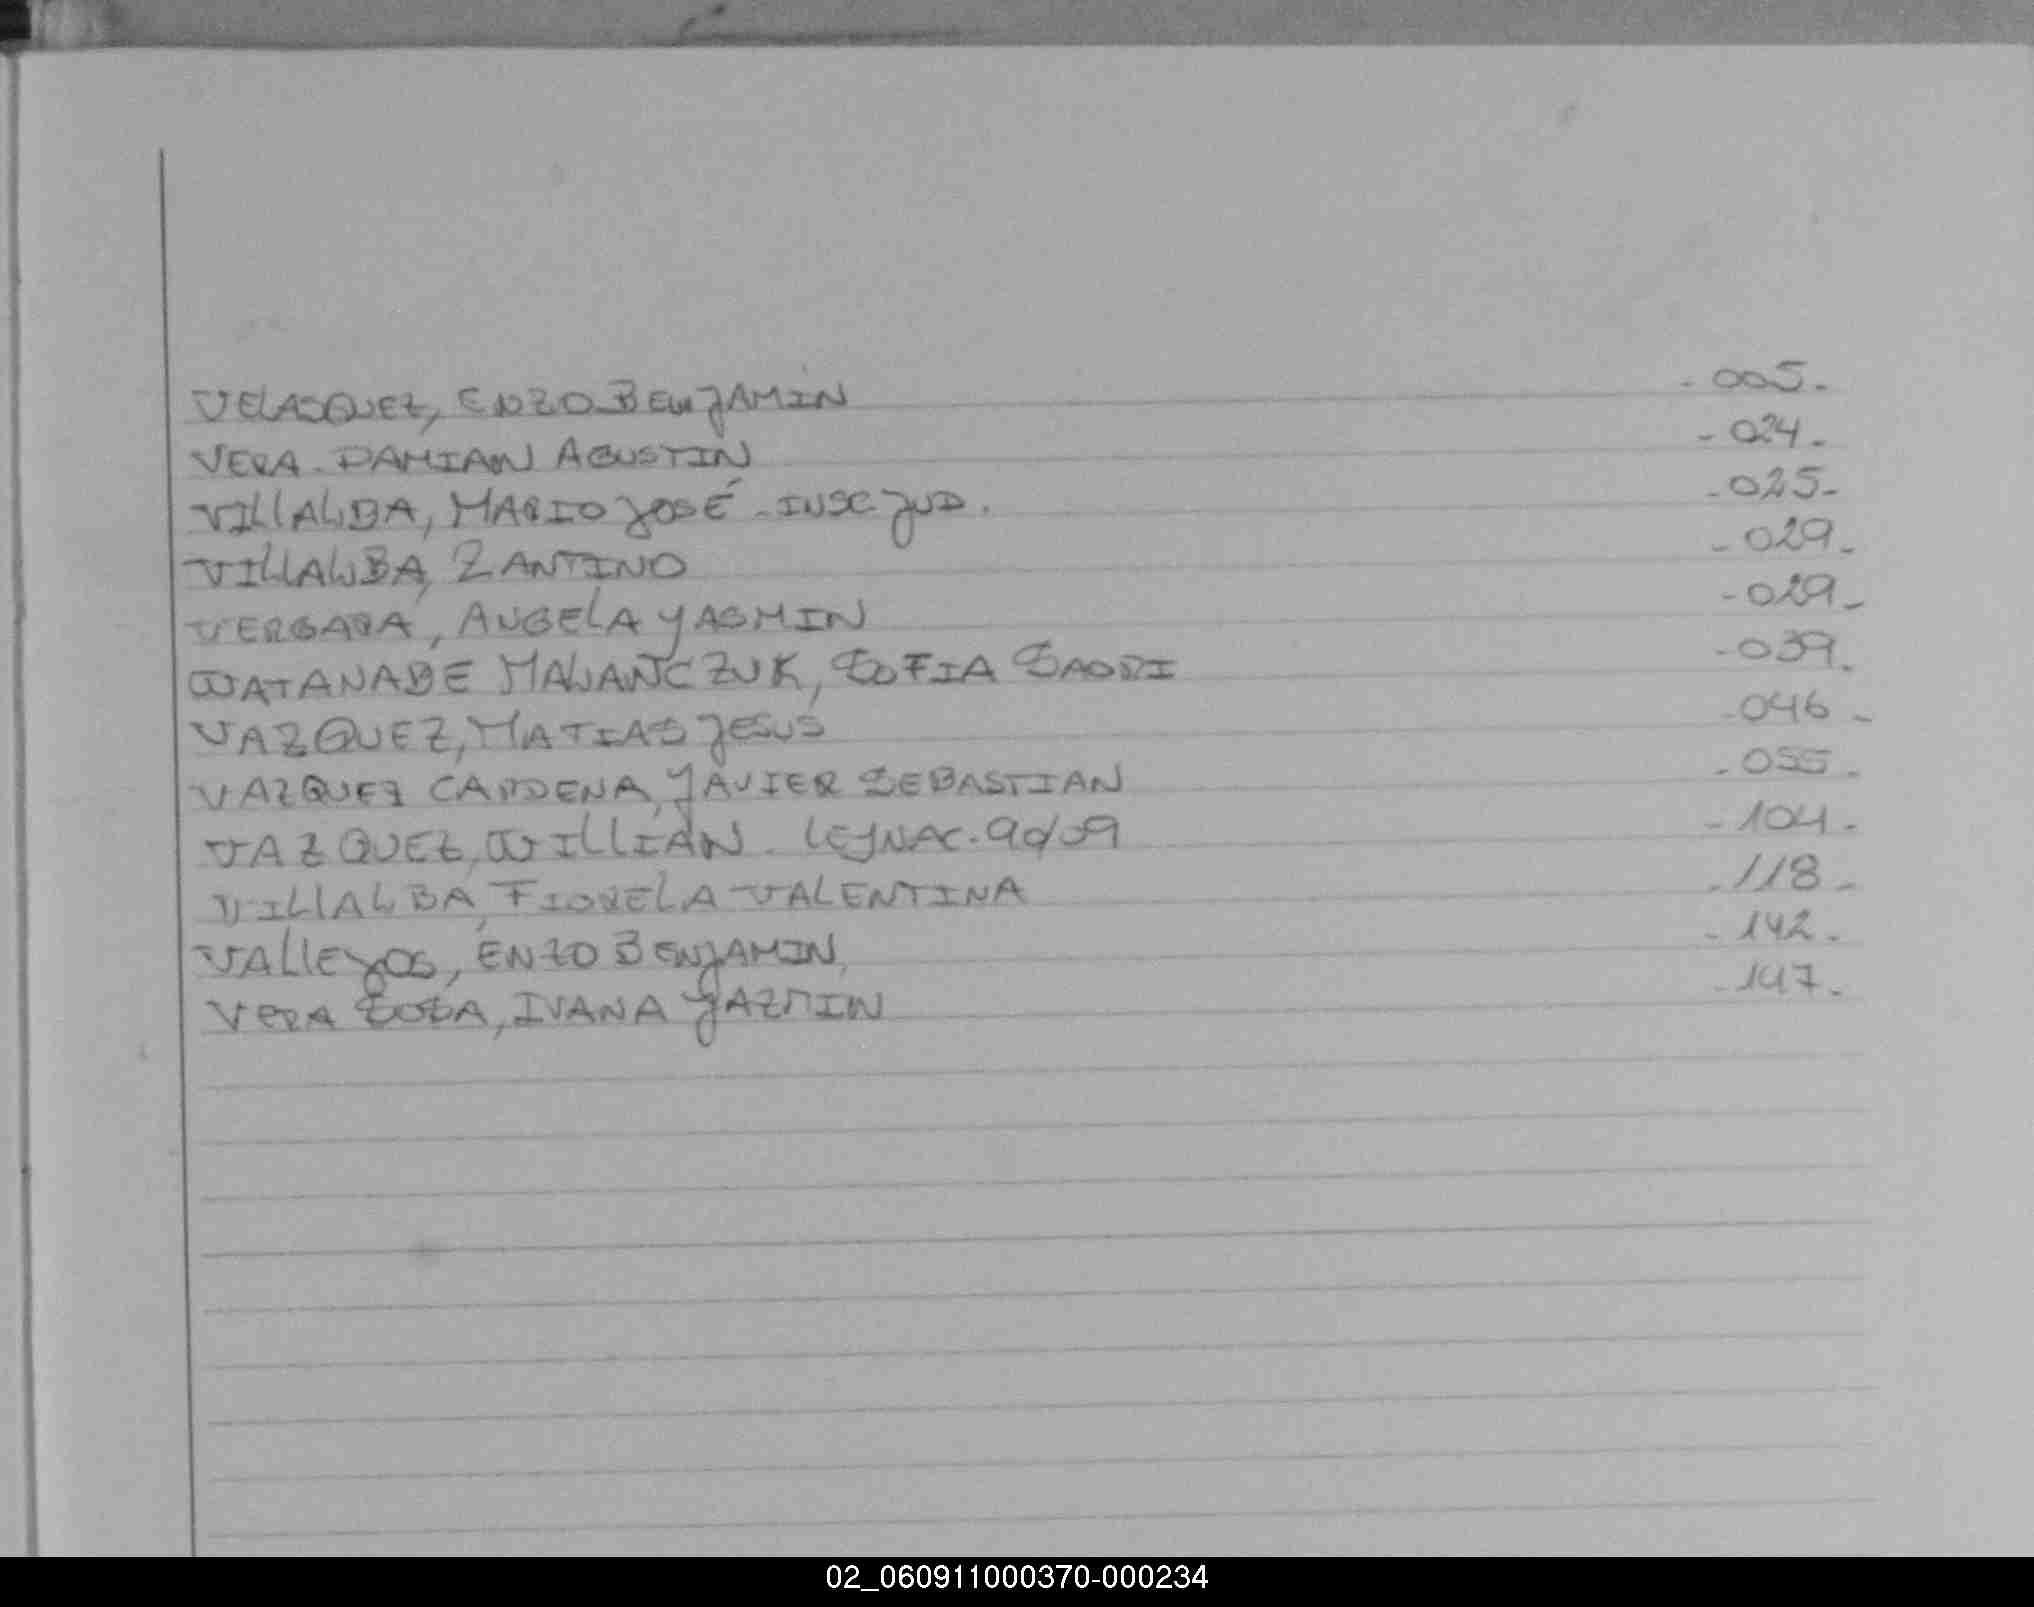 VELASQUEZ, ENZO BENJAMIN - 005 -
VERA - DAMIAN AGUSTIN - 024 -
VILLALBA, MARIO JOSÉ - INSC JUD. - 025 -
VILLALBA, ZANTINO - 029 -
VERGARA, ANGELA YASMIN - 029 -
WATANABE MALWANCZUK, SOFIA SAORI - 039 -
VAZQUEZ, MATIAS JESUS - 046 -
VAZQUEZ CARDENA, JAVIER SEBASTIAN - 055 -
VAZQUEZ, WILLIAN - LEY NAC. - 104 -
VILLALBA, FIORELA VALENTINA - 118 -
VALLEJOS, ENZO BENJAMIN - 142 -
VERA SOSA, IVANA JAZMIN - 147 -
02_060911000370-000234